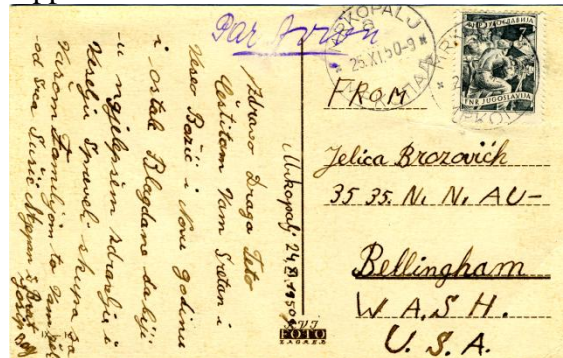 Par Avion
MRKOPALJ
25.XI.50-9
JUGOSLAVIJA
7
FNR JUGOSLAVIJA
FROM
Jelica Brozovich
35 35. N. N. AU-
Bellingham
W A.S H.
U. S. A.
Mrkopalj 24 XI. 1950g
Zdravo Draga Teto
Čestitam Vam Sretan i
Veseo Božić i Novu godinu
i ostale Blagdane da biji
u najlepšem zdravlju i
Veselju Spraveli skupa sa
Vašom Familjom to Vam želi
od Srca Sušić Stjepan i Brat
Josip
FOTO
ZAGREB